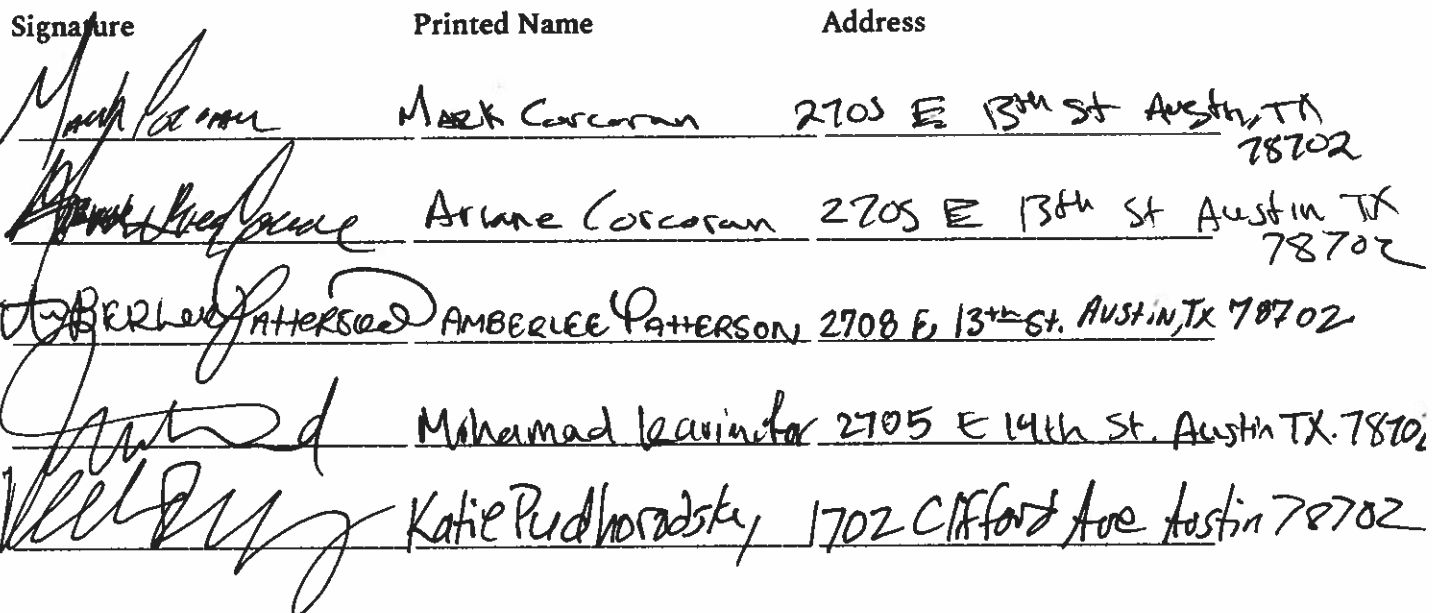 Signature Printed Name Address
Mark Corcoran 2705 E 13th St Austin, TX
78702
Ariane Corcoran 2705 E 13th St Austin TX
78702
AmBERLee PATTERSON AMBERLEE PATTERSON 2708 E 13th St. Austin, TX 78702
Mohamad 2705 E 14th St. Austin TX. 78702
Katie Pudhoradsky 1702 Clifford Ave Austin 78702